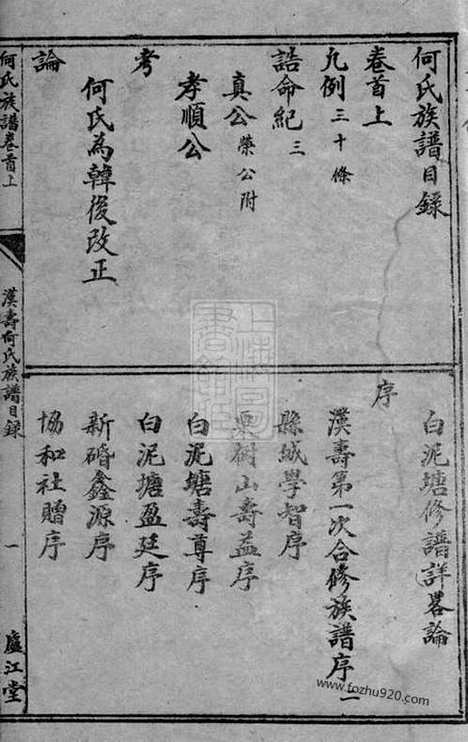 何氏族譜目錄
卷首上
凡例三十條
誥命紀三
真公榮公附
孝順公
考
何氏為韓後改正
論
白泥塘修譜詳畧論
序
漢壽第一次合修族譜序一
縣城學智序
栗樹山壽益序
白泥塘壽尊序
白泥塘盈廷序
新礄鑫源序
協和社贈序
何氏族譜卷首上
漢壽何氏族譜目錄
一
廬江堂
www.fozhu920.com